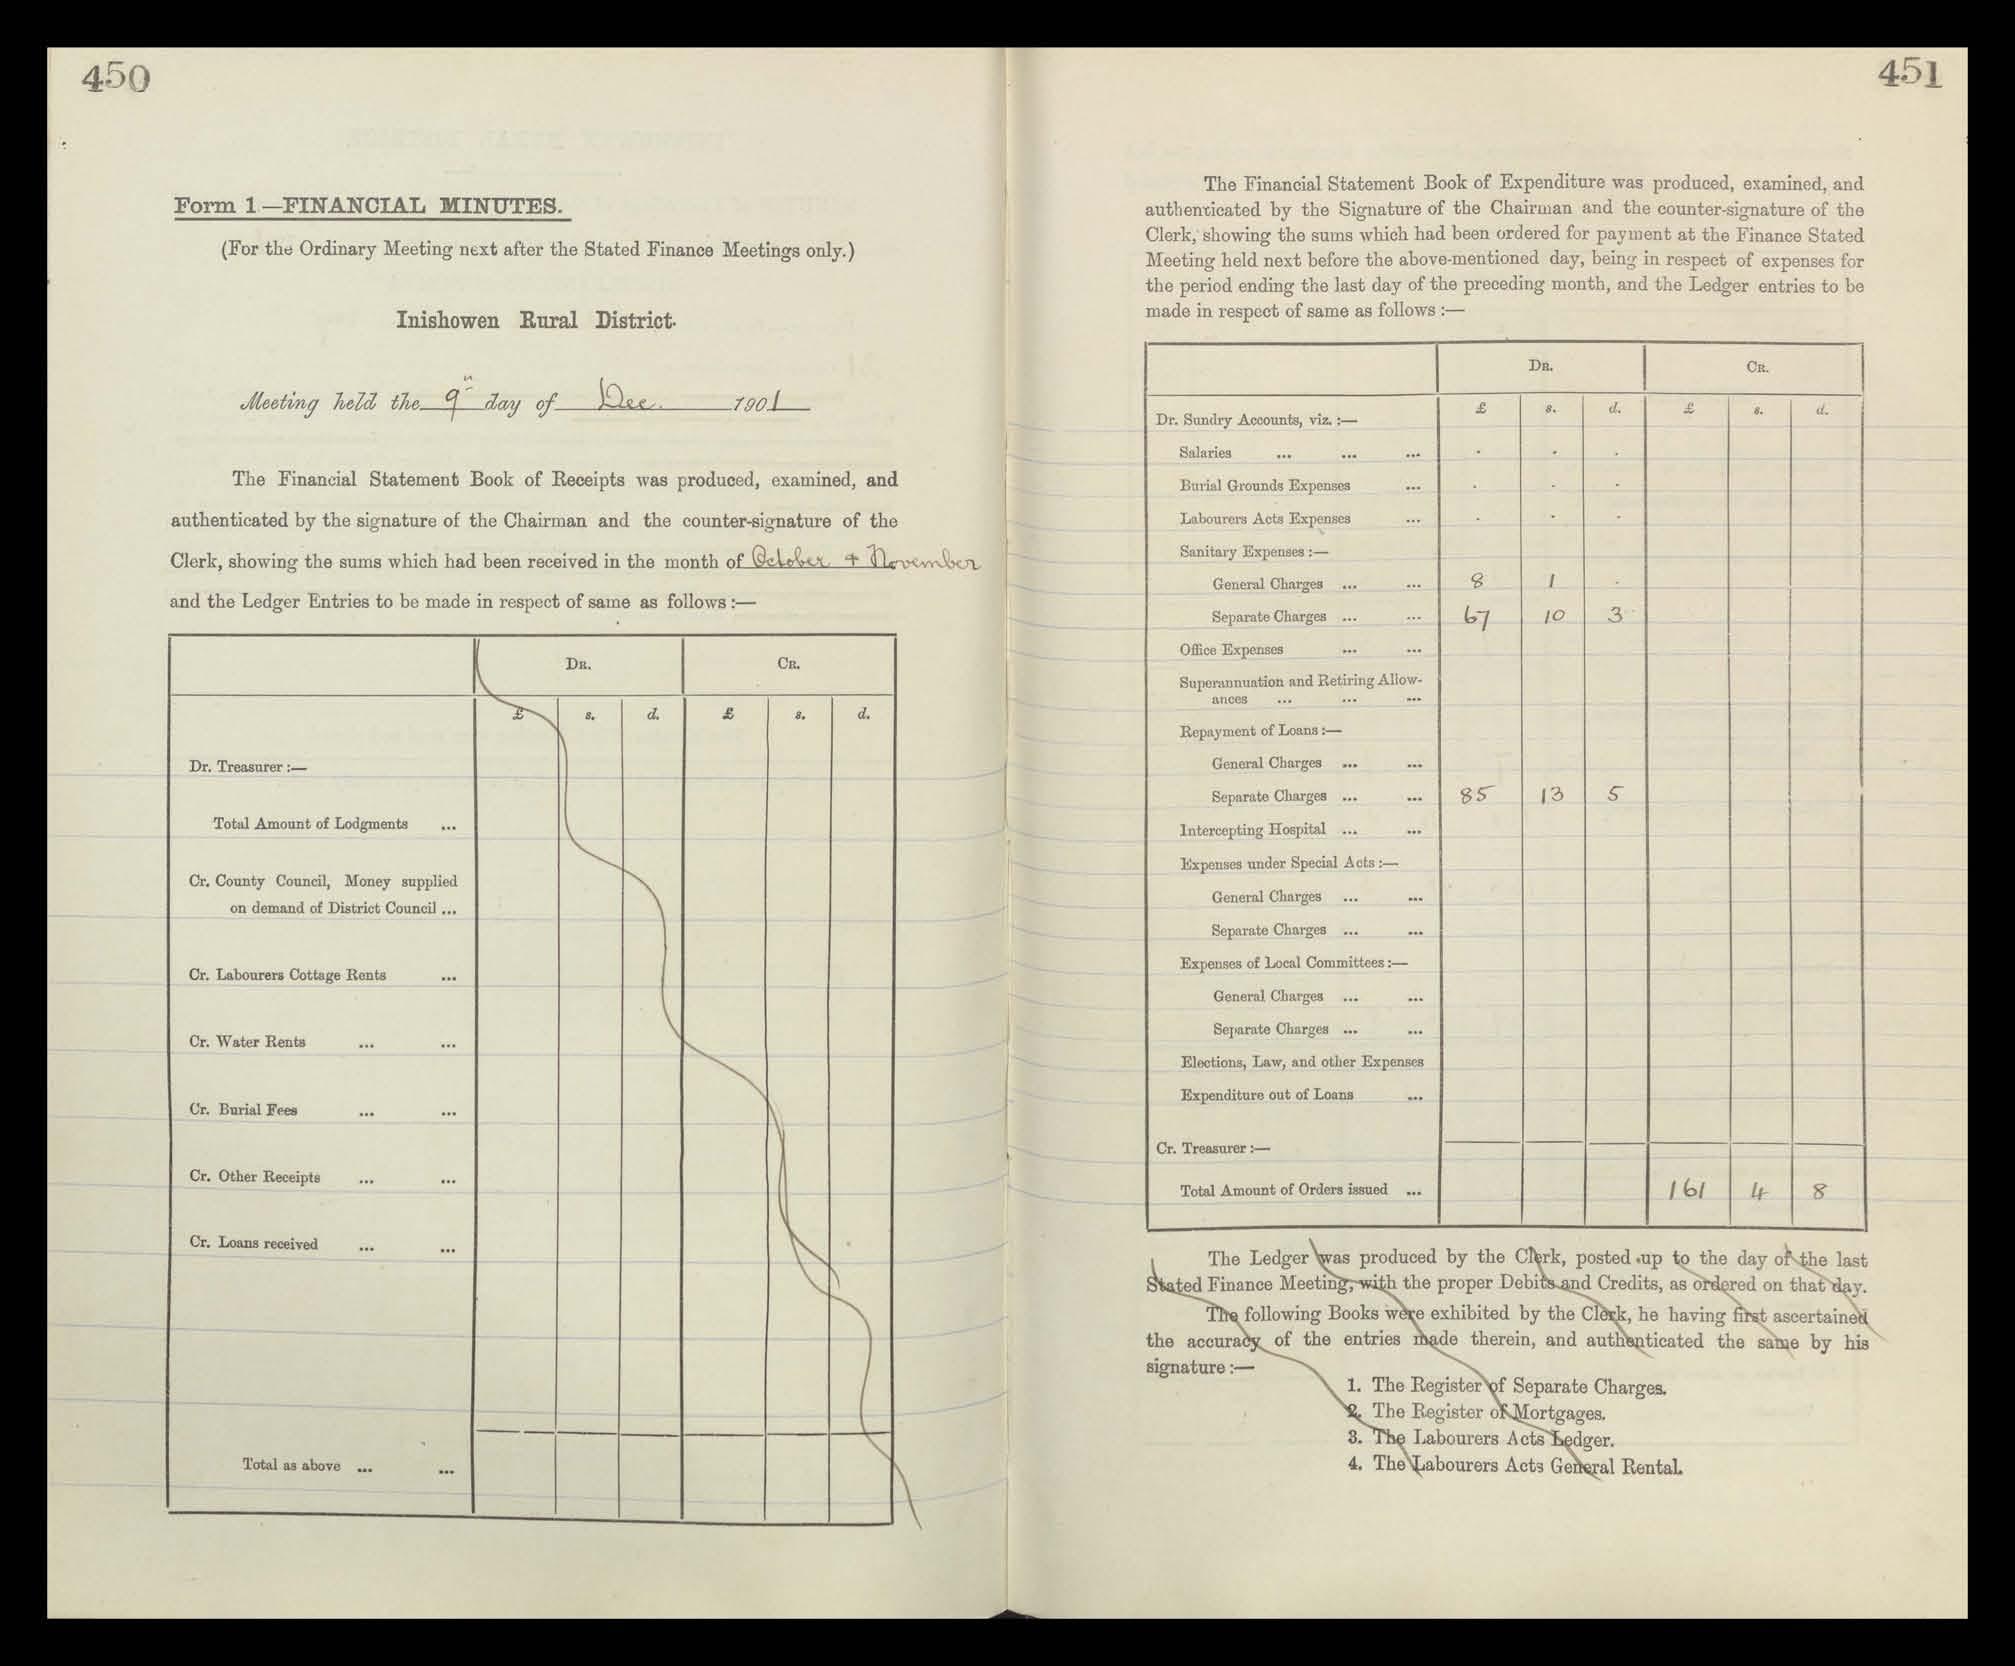 450
Form 1.—FINANCIAL MINUTES.
(For the Ordinary Meeting next after the Stated Finance Meetings only.)
Inishowen Rural District.
Meeting held the 9th day of Dec. 1901
The Financial Statement Book of Receipts was produced, examined, and
authenticated by the signature of the Chairman and the counter-signature of the
Clerk, showing the sums which had been received in the month of October & November
and the Ledger Entries to be made in respect of same as follows :—
DR. CR.
£ s. d. £ s. d.
Dr. Treasurer :—
Total Amount of Lodgments ...
Cr. County Council, Money supplied
on demand of District Council ...
Cr. Labourers Cottage Rents ...
Cr. Water Rents ... ...
Cr. Burial Fees ... ...
Cr. Other Receipts ... ...
Cr. Loans received ... ...
Total as above ... ...
451
The Financial Statement Book of Expenditure was produced, examined, and
authenticated by the Signature of the Chairman and the counter-signature of the
Clerk, showing the sums which had been ordered for payment at the Finance Stated
Meeting held next before the above-mentioned day, being in respect of expenses for
the period ending the last day of the preceding month, and the Ledger entries to be
made in respect of same as follows :—
DR. CR.
£ s. d. £ s. d.
Dr. Sundry Accounts, viz. :—
Salaries ... ... ... - - -
Burial Grounds Expenses ... - - -
Labourers Acts Expenses ... - - -
Sanitary Expenses :—
General Charges ... ... 8 1 -
Separate Charges ... ... 67 10 3
Office Expenses ... ...
Superannuation and Retiring Allow-
ances ... ... ...
Repayment of Loans :—
General Charges ... ...
Separate Charges ... ... 85 13 5
Intercepting Hospital ... ...
Expenses under Special Acts :—
General Charges ... ...
Separate Charges ... ...
Expenses of Local Committees :—
General Charges ... ...
Separate Charges ... ...
Elections, Law, and other Expenses
Expenditure out of Loans ...
Cr. Treasurer :—
Total Amount of Orders issued ... 161 4 8
The Ledger was produced by the Clerk, posted up to the day of the last
Stated Finance Meeting, with the proper Debits and Credits, as ordered on that day.
The following Books were exhibited by the Clerk, he having first ascertained
the accuracy of the entries made therein, and authenticated the same by his
signature :—
1. The Register of Separate Charges.
2. The Register of Mortgages.
3. The Labourers Acts Ledger.
4. The Labourers Acts General Rental.